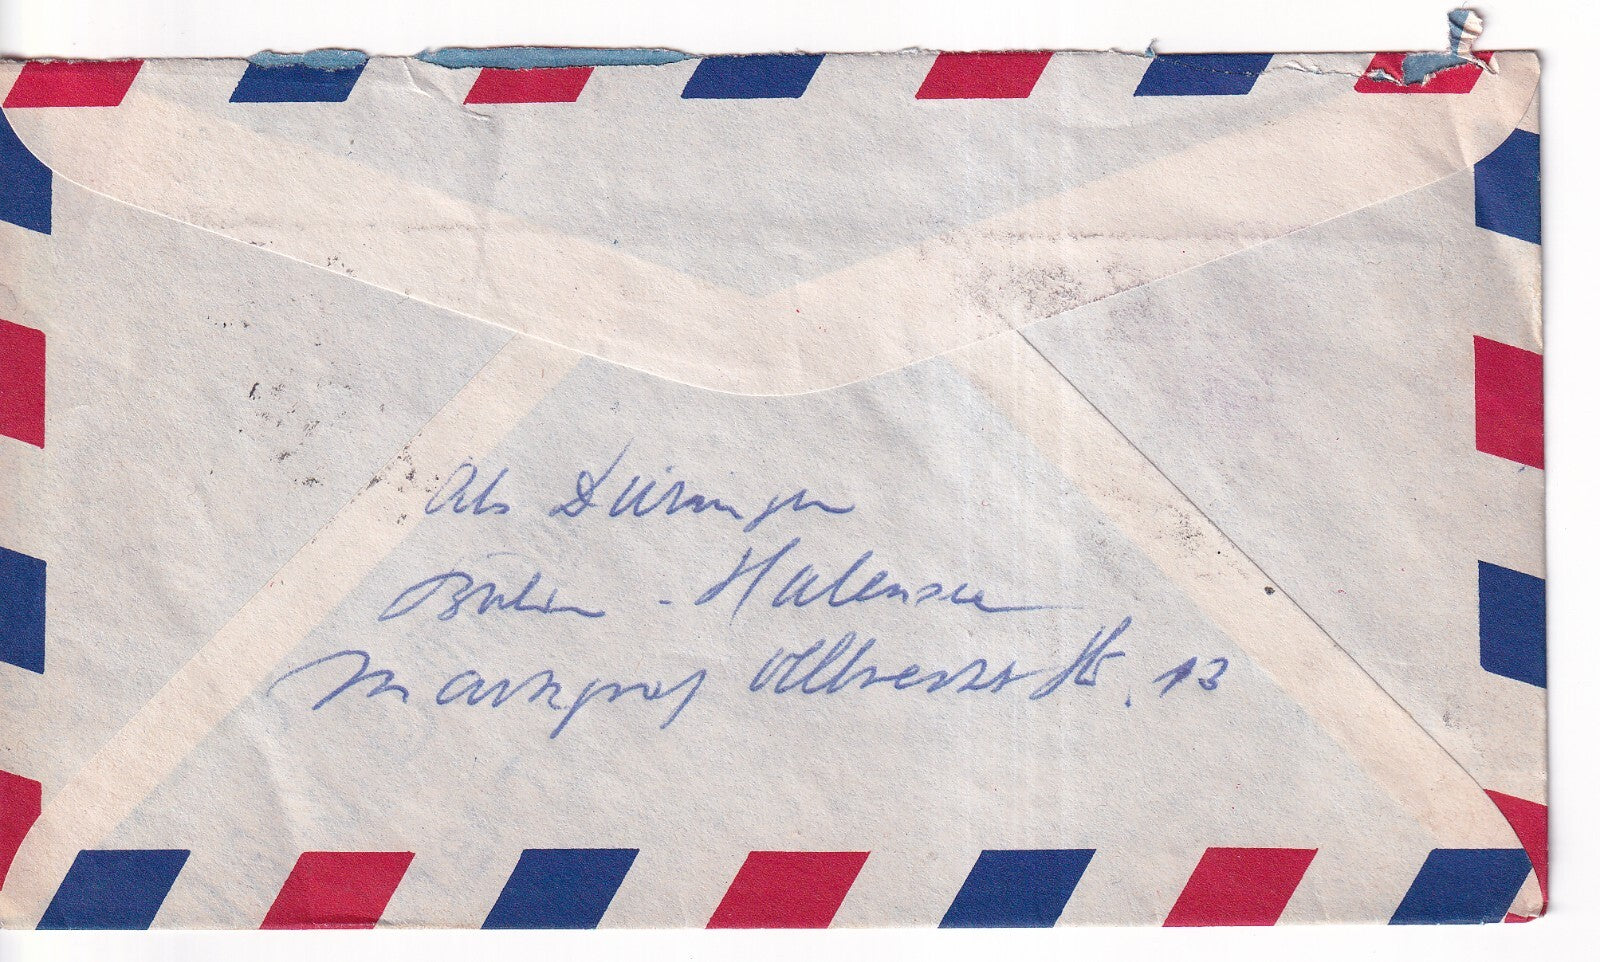 Abs Düringer
Berlin - Halensee
Markgraf Albrecht Str. 13